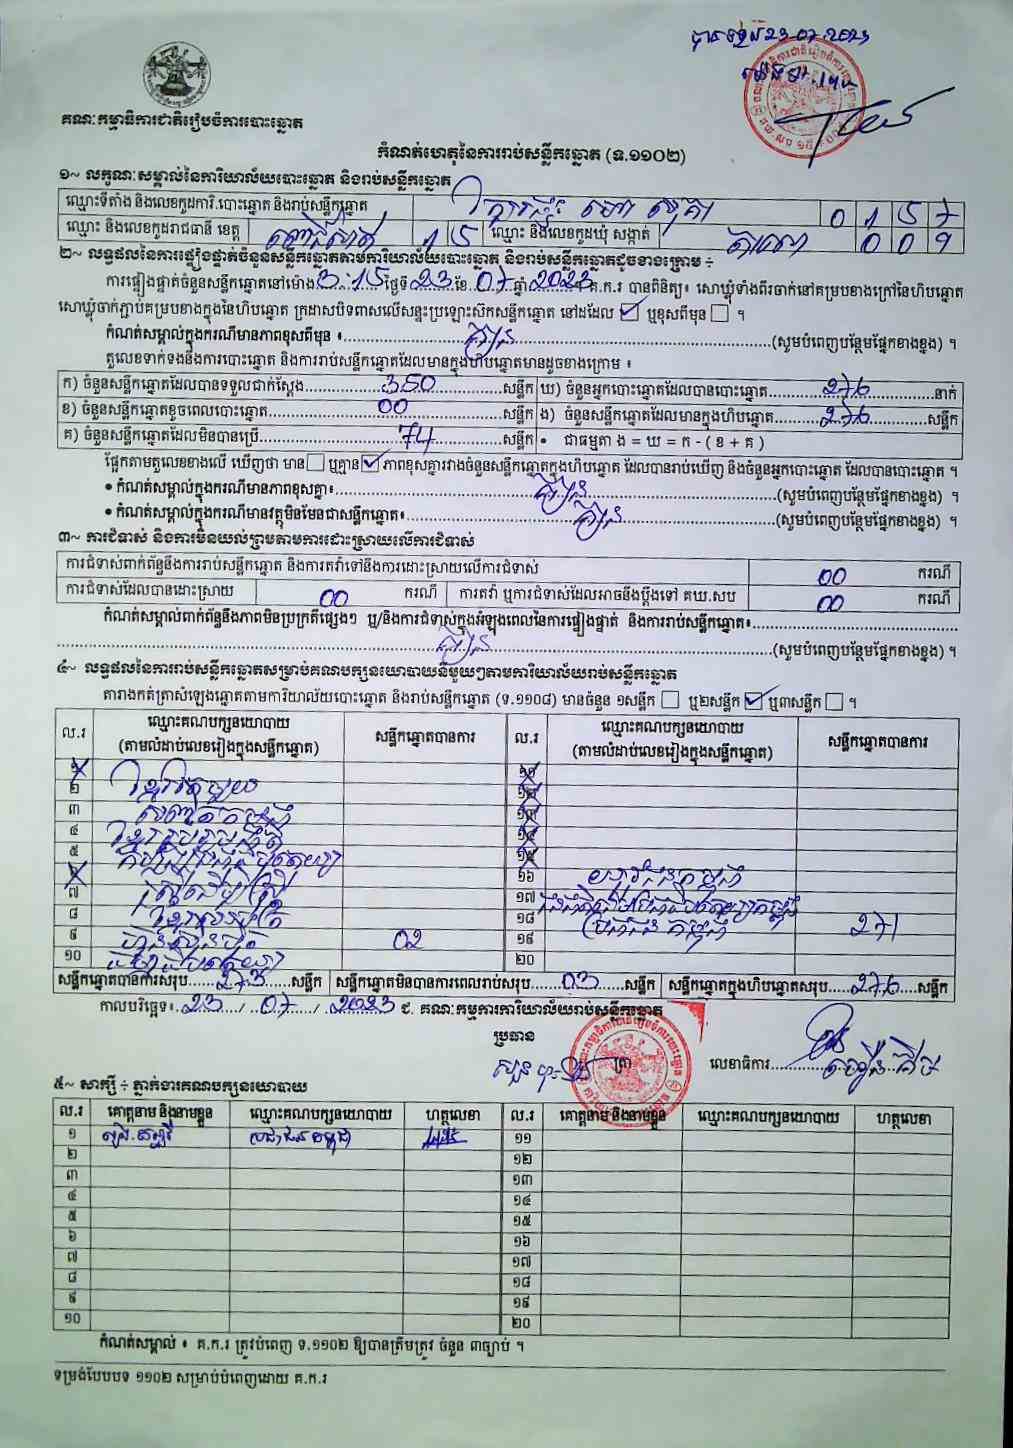 បានទទួល 23-07-2023
គណៈកម្មាធិការជាតិរៀបចំការបោះឆ្នោត
កំណត់ហេតុនៃការរាប់សន្លឹកឆ្នោត (ទ.១១០២)
១~ លក្ខណៈសម្គាល់នៃការិយាល័យបោះឆ្នោត និងរាប់សន្លឹកឆ្នោត
ឈ្មោះទីតាំង និងលេខកូដការិ.បោះឆ្នោត និងរាប់សន្លឹកឆ្នោត 0 1 5 7
ឈ្មោះ និងលេខកូដរាជធានី ខេត្ត ពោធិ៍សាត់ 1 5 ឈ្មោះ និងលេខកូដឃុំ សង្កាត់ 0 0 9
២~ លទ្ធផលនៃការផ្ទៀងផ្ទាត់ចំនួនសន្លឹកឆ្នោតតាមការិយាល័យបោះឆ្នោត និងរាប់សន្លឹកឆ្នោតដូចខាងក្រោម ÷
ការផ្ទៀងផ្ទាត់ចំនួនសន្លឹកឆ្នោតនៅម៉ោង 3:15 ថ្ងៃទី 23 ខែ 07 ឆ្នាំ 2023 គ.ក.រ បានពិនិត្យ៖ សោឃ្លុំទាំងពីរចាក់នៅគម្របខាងក្រៅនៃហិបឆ្នោត
សោឃ្លុំចាក់ភ្ជាប់គម្របខាងក្នុងនៃហិបឆ្នោត ក្រដាសបិទពាសលើសន្ទះប្រឡោះស៊កសន្លឹកឆ្នោត នៅដដែល ☑ ឬខុសពីមុន ☐ ។
កំណត់សម្គាល់ក្នុងករណីមានភាពខុសពីមុន ៖ គ្មាន (សូមបំពេញបន្ថែមផ្នែកខាងខ្នង) ។
តួលេខទាក់ទងនឹងការបោះឆ្នោត និងការរាប់សន្លឹកឆ្នោតដែលមានក្នុងហិបឆ្នោតមានដូចខាងក្រោម ៖
ក) ចំនួនសន្លឹកឆ្នោតដែលបានទទួលជាក់ស្តែង 350 សន្លឹក ឃ) ចំនួនអ្នកបោះឆ្នោតដែលបានបោះឆ្នោត 276 នាក់
ខ) ចំនួនសន្លឹកឆ្នោតខូចពេលបោះឆ្នោត 00 សន្លឹក ង) ចំនួនសន្លឹកឆ្នោតដែលមានក្នុងហិបឆ្នោត 276 សន្លឹក
គ) ចំនួនសន្លឹកឆ្នោតដែលមិនបានប្រើ 74 សន្លឹក • ជាធម្មតា ង = ឃ = ក - ( ខ + គ )
ផ្អែកតាមតួលេខខាងលើ ឃើញថា មាន ☐ ឬគ្មាន ☑ ភាពខុសគ្នារវាងចំនួនសន្លឹកឆ្នោតក្នុងហិបឆ្នោត ដែលបានរាប់ឃើញ និងចំនួនអ្នកបោះឆ្នោត ដែលបានបោះឆ្នោត ។
• កំណត់សម្គាល់ក្នុងករណីមានភាពខុសគ្នា៖ គ្មាន (សូមបំពេញបន្ថែមផ្នែកខាងខ្នង) ។
• កំណត់សម្គាល់ក្នុងករណីមានវត្ថុមិនមែនជាសន្លឹកឆ្នោត៖ គ្មាន (សូមបំពេញបន្ថែមផ្នែកខាងខ្នង) ។
៣~ ការជំទាស់ និងការមិនយល់ព្រមតាមការដោះស្រាយលើការជំទាស់
ការជំទាស់ពាក់ព័ន្ធនឹងការរាប់សន្លឹកឆ្នោត និងការតវ៉ាទៅនឹងការដោះស្រាយលើការជំទាស់ 00 ករណី
ការជំទាស់ដែលបានដោះស្រាយ 00 ករណី ការតវ៉ា ឬការជំទាស់ដែលអាចនឹងប្តឹងទៅ គឃ.សប 00 ករណី
កំណត់សម្គាល់ពាក់ព័ន្ធនឹងភាពមិនប្រក្រតីផ្សេងៗ ឬ/និងការជំទាស់ក្នុងអំឡុងពេលនៃការផ្ទៀងផ្ទាត់ និងការរាប់សន្លឹកឆ្នោត៖
គ្មាន (សូមបំពេញបន្ថែមផ្នែកខាងខ្នង) ។
៤~ លទ្ធផលនៃការរាប់សន្លឹកឆ្នោតសម្រាប់គណបក្សនយោបាយនីមួយៗតាមការិយាល័យរាប់សន្លឹកឆ្នោត
តារាងកត់ត្រាសំឡេងឆ្នោតតាមការិយាល័យបោះឆ្នោត និងរាប់សន្លឹកឆ្នោត (ទ.១១០៨) មានចំនួន ១សន្លឹក ☐ ឬ២សន្លឹក ☑ ឬ៣សន្លឹក ☐ ។
ល.រ ឈ្មោះគណបក្សនយោបាយ (តាមលំដាប់លេខរៀងក្នុងសន្លឹកឆ្នោត) សន្លឹកឆ្នោតបានការ ល.រ ឈ្មោះគណបក្សនយោបាយ (តាមលំដាប់លេខរៀងក្នុងសន្លឹកឆ្នោត) សន្លឹកឆ្នោតបានការ
១ ១១
២ ១២
៣ ១៣
៤ ១៤
៥ ១៥
៦ ១៦
៧ ១៧
៨ ១៨ ប្រជាជនកម្ពុជា 271
៩ 02 ១៩
១០ 20
សន្លឹកឆ្នោតបានការសរុប 273 សន្លឹក សន្លឹកឆ្នោតមិនបានការពេលរាប់សរុប 03 សន្លឹក សន្លឹកឆ្នោតក្នុងហិបឆ្នោតសរុប 276 សន្លឹក
កាលបរិច្ឆេទ៖ 23 / 07 / 2023 ជ. គណៈកម្មការការិយាល័យរាប់សន្លឹកឆ្នោត
ប្រធាន
ត្រា លេខាធិការ
៥~ សាក្សី ÷ ភ្នាក់ងារគណបក្សនយោបាយ
ល.រ គោត្តនាម និងនាមខ្លួន ឈ្មោះគណបក្សនយោបាយ ហត្ថលេខា ល.រ គោត្តនាម និងនាមខ្លួន ឈ្មោះគណបក្សនយោបាយ ហត្ថលេខា
១ ប្រជាជនកម្ពុជា ១១
២ ១២
៣ ១៣
៤ ១៤
៥ ១៥
៦ ១៦
៧ ១៧
៨ ១៨
៩ ១៩
១០ 20
កំណត់សម្គាល់ ៖ គ.ក.រ ត្រូវបំពេញ ទ.១១០២ ឱ្យបានត្រឹមត្រូវ ចំនួន ៣ច្បាប់ ។
ទម្រង់បែបបទ ១១០២ សម្រាប់បំពេញដោយ គ.ក.រ